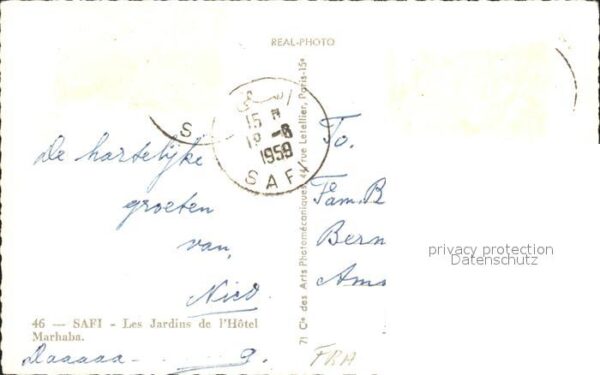 REAL-PHOTO
آسفي
15
18 -8
1959
SAFI
S
De hartelijke
groeten
van,
Nico.
46 — SAFI - Les Jardins de l'Hôtel
Marhaba.
Daaaaa
71 Cie des Arts Photomécaniques, 44, rue Letellier, Paris-15e
To.
Fam. B
Bern
Ams
privacy protection
Datenschutz
FRA